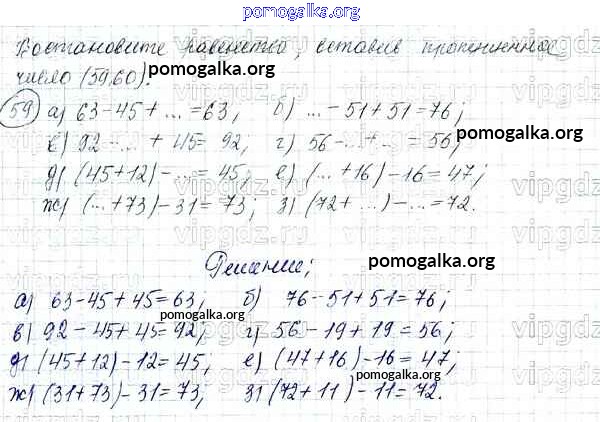 pomogalka.org
Востановите равенство, вставив пропущенное
число (59,60).
pomogalka.org
59 а) 63-45+ ... =63; б) ... -51+51=76;
pomogalka.org
в) 92- ... +45=92; г) 56- ... + ... =56;
д) (45+12)- ... =45; е) ( ... +16)-16=47;
ж) ( ... +73)-31=73; з) (72+ ... )- ... =72.
Решение;
pomogalka.org
а) 63-45+45=63; б) 76-51+51=76;
pomogalka.org
в) 92-45+45=92; г) 56-19+19=56;
д) (45+12)-12=45; е) (47+16)-16=47;
pomogalka.org
ж) (31+73)-31=73; з) (72+11)-11=72.